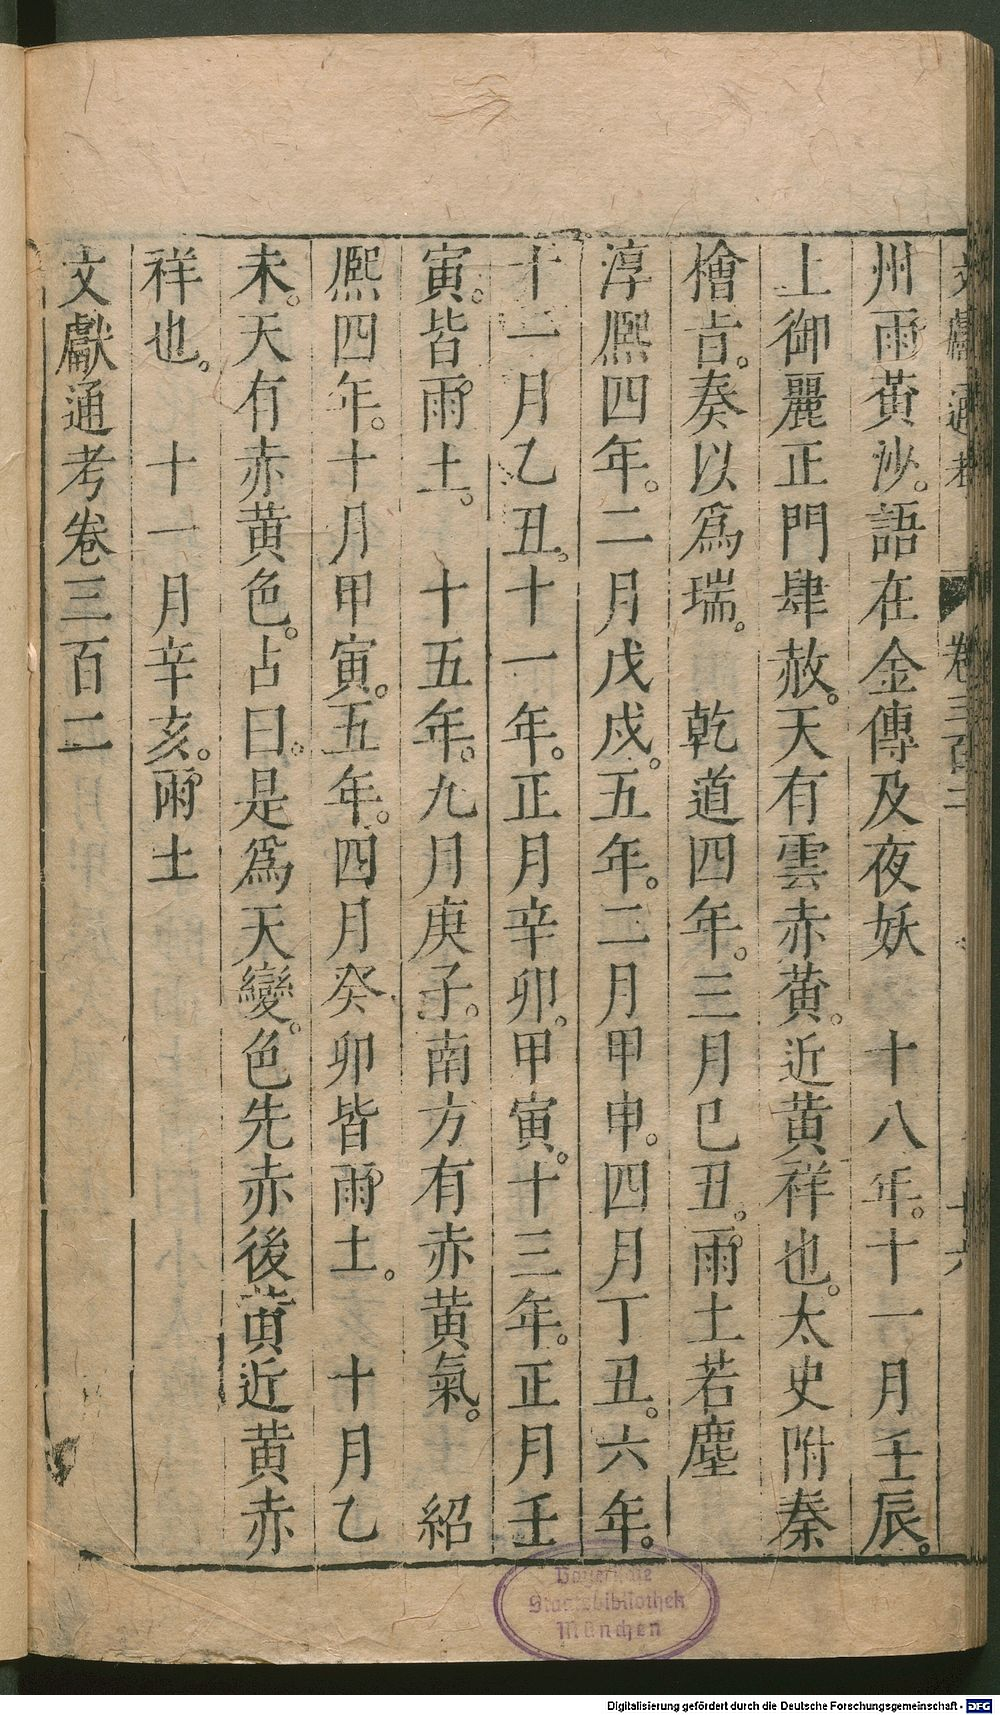 州雨黃沙。語在金傳及夜妖　十八年。十一月壬辰。
上御麗正門肆赦。天有雲赤黃。近黃祥也。太史附秦
檜㫖。奏以爲瑞。　乾道四年。三月己丑。雨土若塵
淳熈四年。二月戊戌。五年。二月甲申。四月丁丑。六年。
十一月乙丑。十一年。正月辛卯。甲寅。十三年。正月壬
寅。皆雨土。　十五年。九月庚子。南方有赤黃氣。　紹
熈四年。十月甲寅。五年。四月癸卯皆雨土。　十月乙
未。天有赤黃色。占曰。是爲天變。色先赤後黃近黃赤
祥也。　十一月辛亥。雨土
文獻通考卷三百二
文獻通考　卷三百二　十六
Bayerische
Staatsbibliothek
München
Digitalisierung gefördert durch die Deutsche Forschungsgemeinschaft - DFG